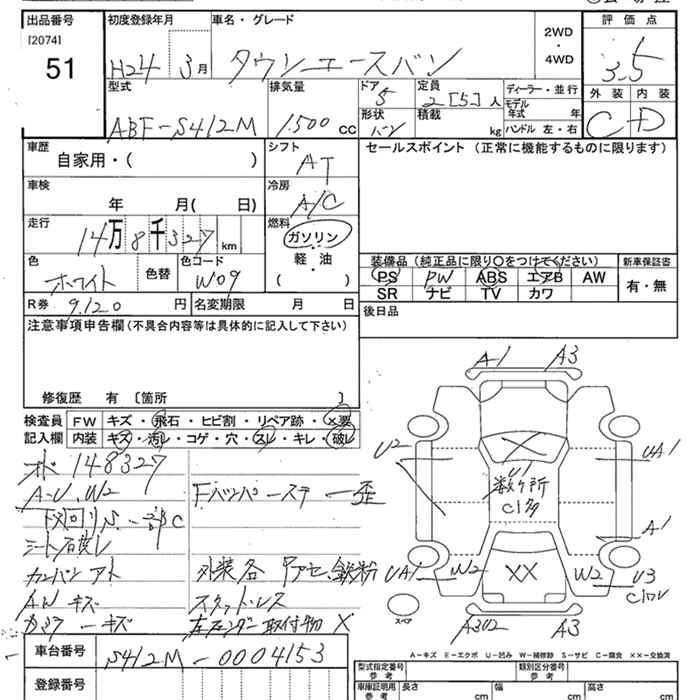 出品番号 初度登録年月 車名・グレード 評価点
[2074]
51
H24 3月 タウンエースバン
2WD
・
4WD
3.5
型式 排気量 ドア 定員 ディーラー・並行 外装 内装
ABF-S412M 1,500 cc 5 2 [5] 人
モデル年式 年
形状 バン 積載 kg ハンドル 左・右
C D
車歴 自家用・( )
シフト AT
セールスポイント (正常に機能するものに限ります)
車検 年 月( 日)
冷房 A/C
走行 14万8千327km
燃料 ガソリン・軽油・( )
色 ホワイト 色替 色コード W09
R券 9,120 円 名変期限 月 日
装備品 (純正品に限り○をつけてください) 新車保証書
PS PW ABS エアB AW 有・無
SR ナビ TV カワ
後日品
注意事項申告欄 (不具合内容等は具体的に記入して下さい)
修復歴 有 [箇所 ]
検査員記入欄
FW キズ・飛石・ヒビ割・リペア跡・×要
内装 キズ・汚レ・コゲ・穴・スレ・キレ・破レ
148327
A-U.W2 Fバンパーステー歪
下廻りS一部C
シート破レ
カンバンアト 外装各 鉄粉
AWキズ スタットレス
キズ 左フェンダー取付物X
A1 A3
U2 UA1
U1
数ヶ所
C1多
A1
UA1 W2 XX W2 U3
スペア
A3U2 A3
車台番号 S412M-0004153
登録番号
A-キズ E-エクボ U-凹み W-補修跡 S-サビ C-腐食 XX-交換済
型式指定番号 参考 類別区分番号 参考
車庫証明用 参考 長さ cm 幅 cm 高さ cm